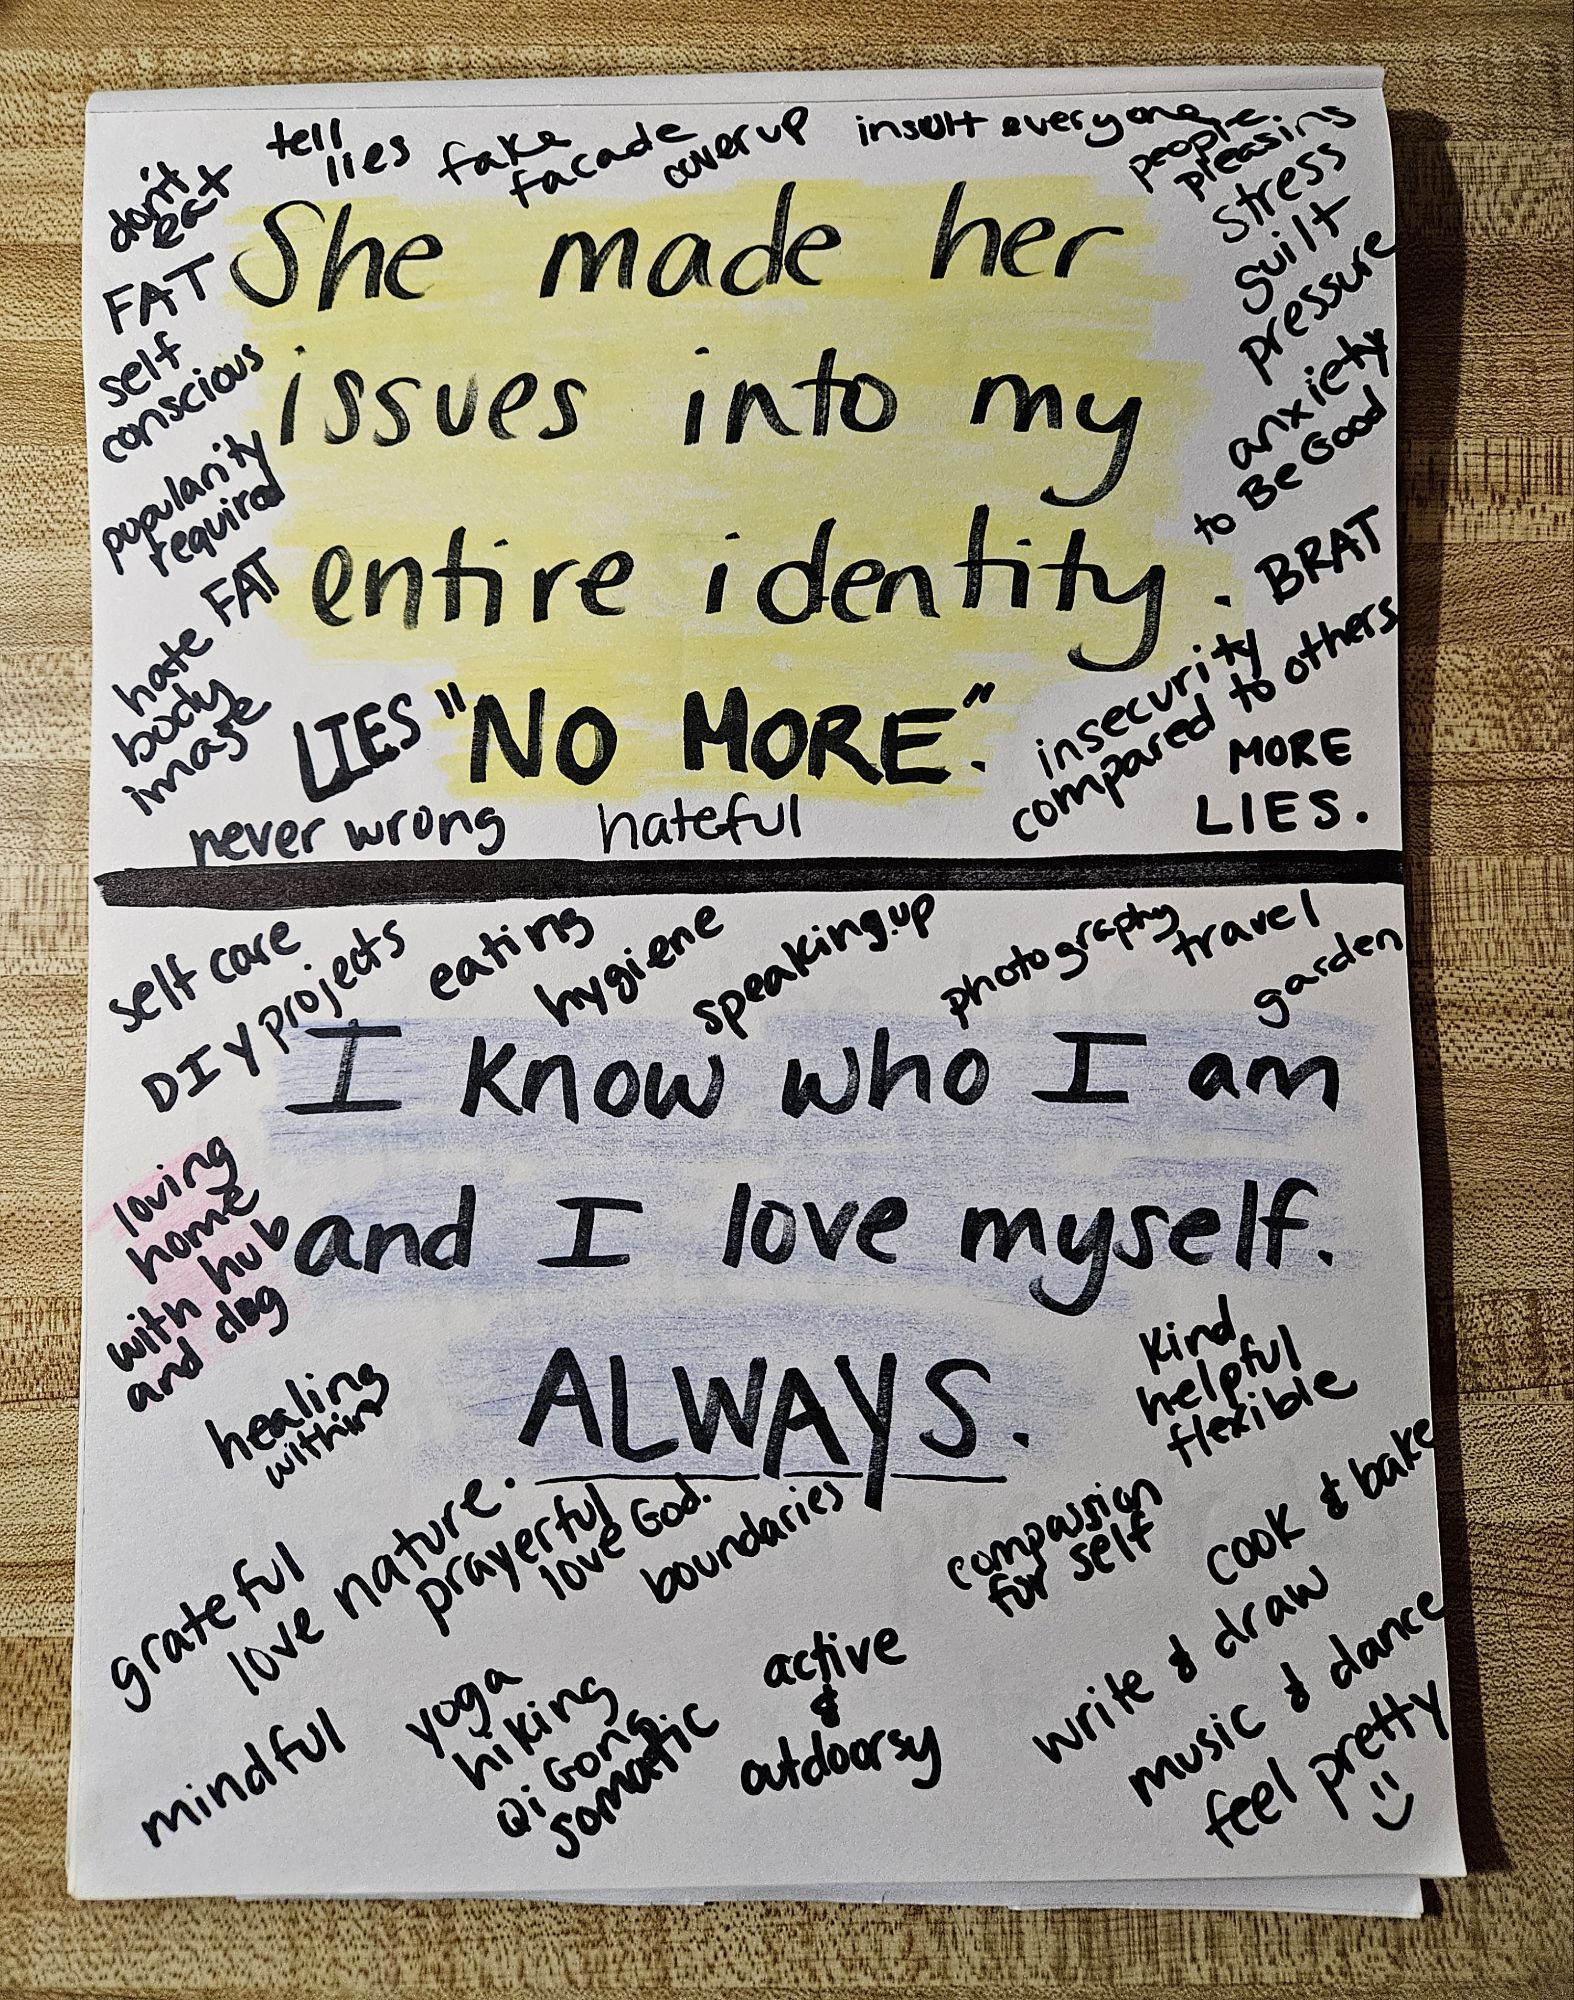 tell
lies
fake
facade
cover up
insult everyone.
people
pleasing
stress
guilt
pressure
anxiety
to Be Good
BRAT
insecurity
compared to others
MORE
LIES.
don't
eat
FAT
self
conscious
popularity
required
hate FAT
body
image
LIES
never wrong
hateful
She made her
issues into my
entire identity.
"NO MORE."
self care
DIY projects
eating
hygiene
speaking up
photography
travel
garden
I know who I am
and I love myself.
ALWAYS.
loving
home
with hub
and dog
healing
within
kind
helpful
flexible
grateful
love nature.
prayerful
love God.
boundaries
compassion
for self
cook & bake
write & draw
music & dance
feel pretty
mindful
yoga
hiking
Qi Gong
somatic
active
&
outdoorsy